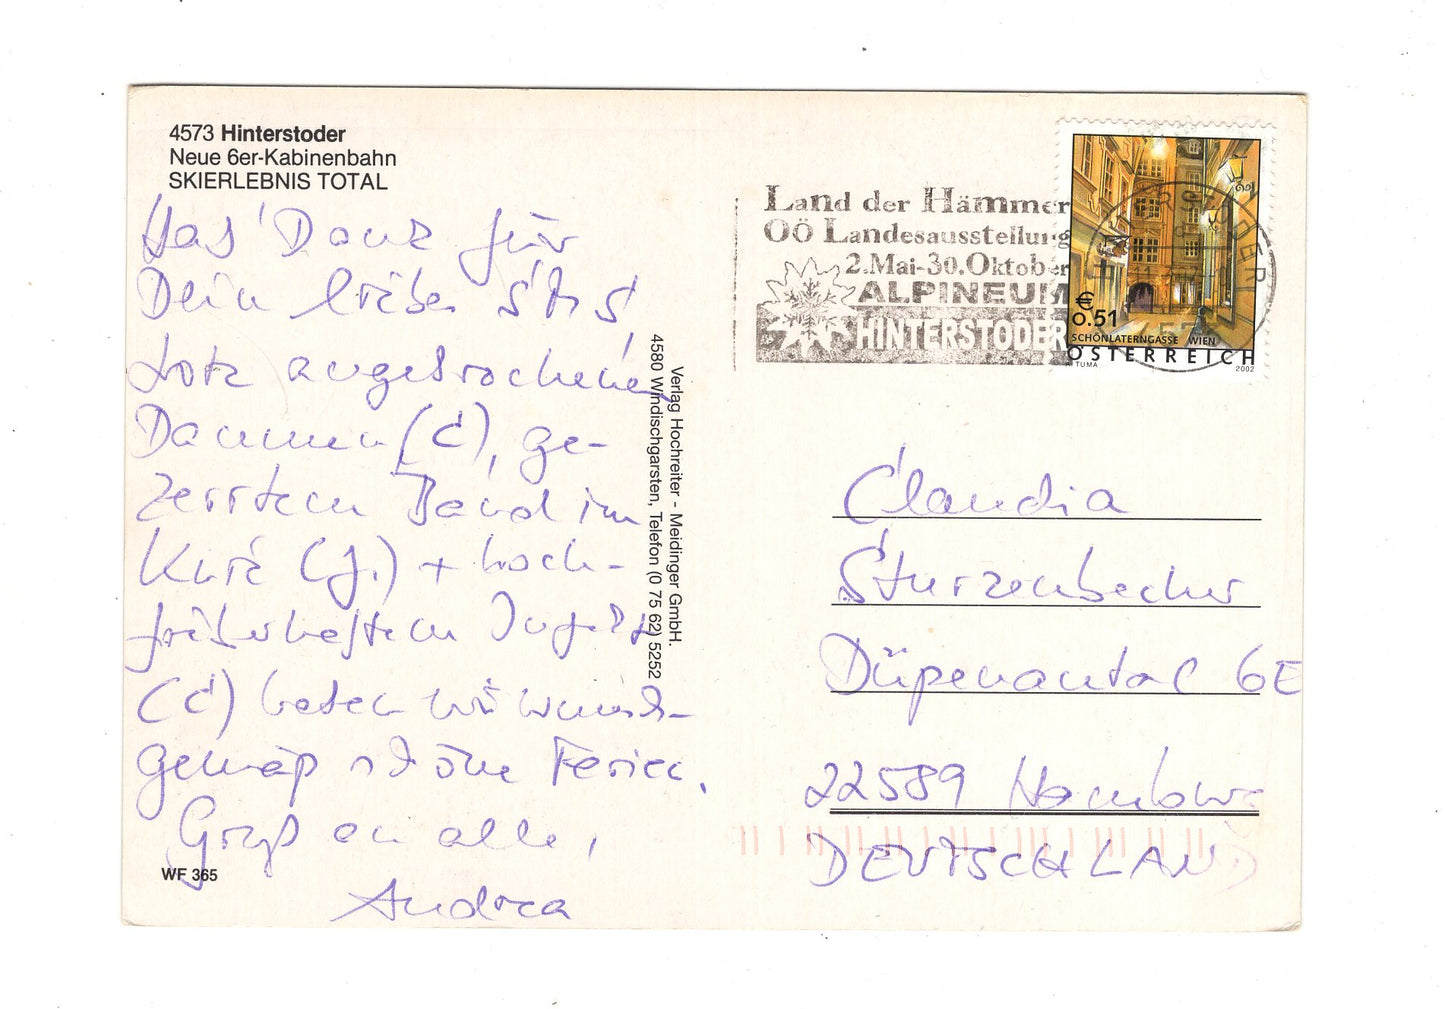 4573 Hinterstoder
Neue 6er-Kabinenbahn
SKIERLEBNIS TOTAL
Dank für
Dein liebes
trotz angebrochenem
Daumen (C), ge-
zerrtem Band im
Knie (J.) + hoch-
fieberhaftem Infekt
(C) hatten wir wunsch-
gemäß schöne Ferien.
Gruß an alle,
Andrea
WF 365
Verlag Hochreiter - Meidinger GmbH.
4580 Windischgarsten, Telefon (0 75 62) 5252
Land der Hämmer
OÖ Landesausstellung
2.Mai-30.Oktober
ALPINEUM
HINTERSTODER
€
0.51
SCHÖNLATERNGASSE WIEN
ÖSTERREICH
TUMA 2002
Claudia
Sturzenbecher
Düpenautal 6E
22589 Hamburg
DEUTSCHLAND